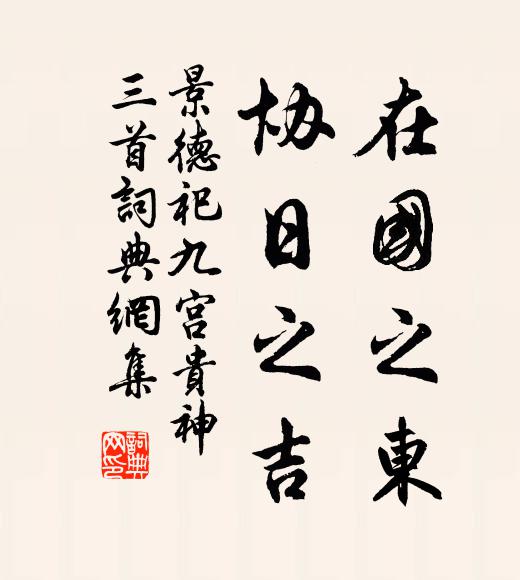 在國之東
協日之吉
景德祀九宮貴神
三首詞典網集
詞典網印